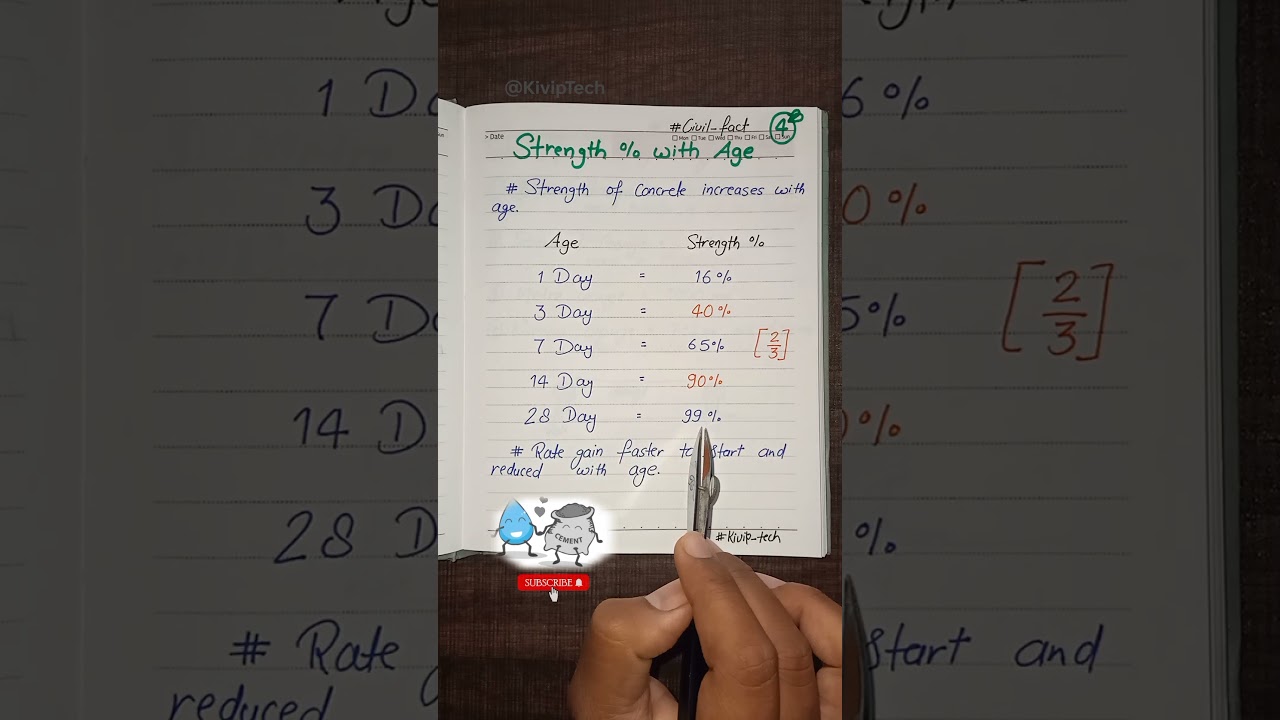 @KivipTech
#Civil_fact 4
> Date Mon Tue Wed Thu Fri Sat Sun
Strength % with Age
# Strength of concrete increases with
age.
Age Strength %
1 Day = 16%
3 Day = 40%
7 Day = 65% [2/3]
14 Day = 90%
28 Day = 99%
# Rate gain faster to start and
reduced with age.
CEMENT
#Kivip_tech
SUBSCRIBE